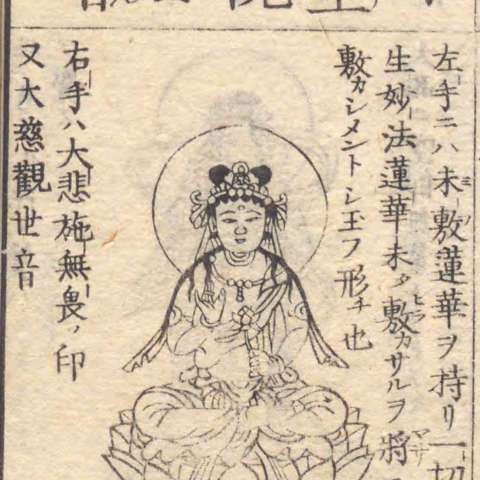 左手ニハ未敷蓮華ヲ持リ一切
生妙法蓮華未タ敷カサルヲ將
敷カシメントシ玉フ形チ也
右手ハ大悲施無畏ノ印
又大慈觀世音